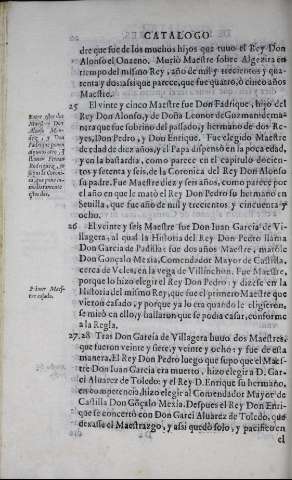 CATALOGO
dre que fue de los muchos hijos que tuuo el Rey Don
Alonso el Onzeno. Murio Maestre sobre Algezira en
tiempo del mismo Rey, año de mil y trezientos y qua-
renta y dos: assi que parece, que fue quatro, ò cinco años
Maestre.
25 El vinte y cinco Maestre fue Don Fadrique, hijo del
Rey Don Alonso, y de Doña Leonor de Guzman: de ma-
nera que fue sobrino del passado, y hermano de dos Re-
yes, Don Pedro, y Don Enrique. Fue elegido Maestre
de edad de diez años, y el Papa dispensò en la poca edad,
y en la bastardia, como parece en el capitulo docien-
tos y setenta y seis, de la Coronica del Rey Don Alonso
su padre. Fue Maestre diez y seis años, como parece por
el año en que le matò el Rey Don Pedro su hermano en
Seuilla, que fue año de mil y trezientos y cincuenta y
ocho.
26 El veinte y seis Maestre fue Don Iuan Garcia de Vi-
llagera, al qual la Historia del Rey Don Pedro llama
Don Garcia de Padilla: fue dos años Maestre, matòle
Don Gonçalo Mexia, Comendador Mayor de Castilla,
cerca de Veles, en la vega de Villinchon. Fue Maestre,
porque lo hizo elegir el Rey Don Pedro: y dizese en la
Historia del mismo Rey, que fue el primero Maestre que
vieron casado, y porque ya lo era quando le eligieron,
se mirò en ello, y hallaron que se podia casar, conforme
a la Regla.
27.28 Tras Don Garcia de Villagera huuo dos Maestres,
que fueron veinte y siete, y veinte y ocho: y fue de esta
manera. El Rey Don Pedro luego que supo que el Maes-
tre Don Iuan Garcia era muerto, hizo elegir a D. Gar-
ci Aluarez de Toledo: y el Rey D. Enrique su hermano,
en competencia, hizo elegir al Comendador Mayor de
Castilla Don Gõçalo Mexia. Despues el Rey Don Enri-
que se concertò con Don Garci Aluarez de Toledo, que
dexasse el Maestrazgo, y assi quedò solo, y pacifico en
el
Primer Maes-
tre casado.